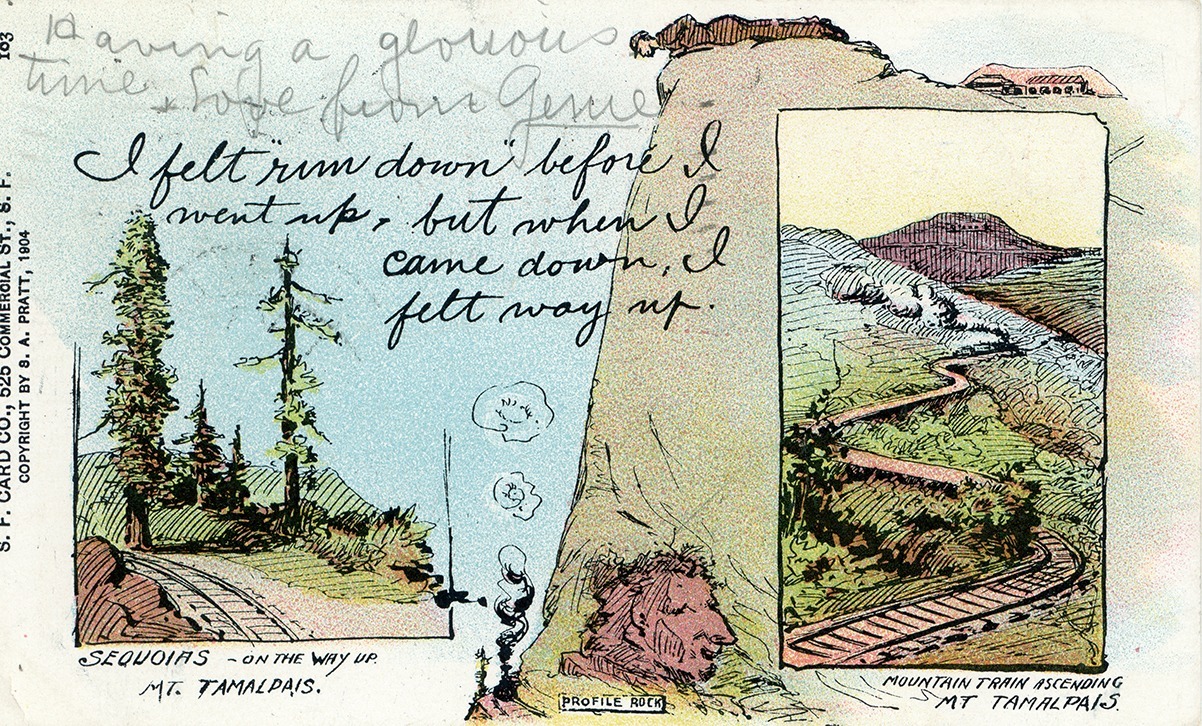 Having a glorious
time + Love from Genie
I felt "run down" before I
went up, but when I
came down, I
felt way up.
SEQUOIAS - ON THE WAY UP.
MT. TAMALPAIS.
PROFILE ROCK
MOUNTAIN TRAIN ASCENDING
MT TAMALPAIS.
103
S. F. CARD CO., 525 COMMERCIAL ST., S. F.
COPYRIGHT BY S. A. PRATT, 1904